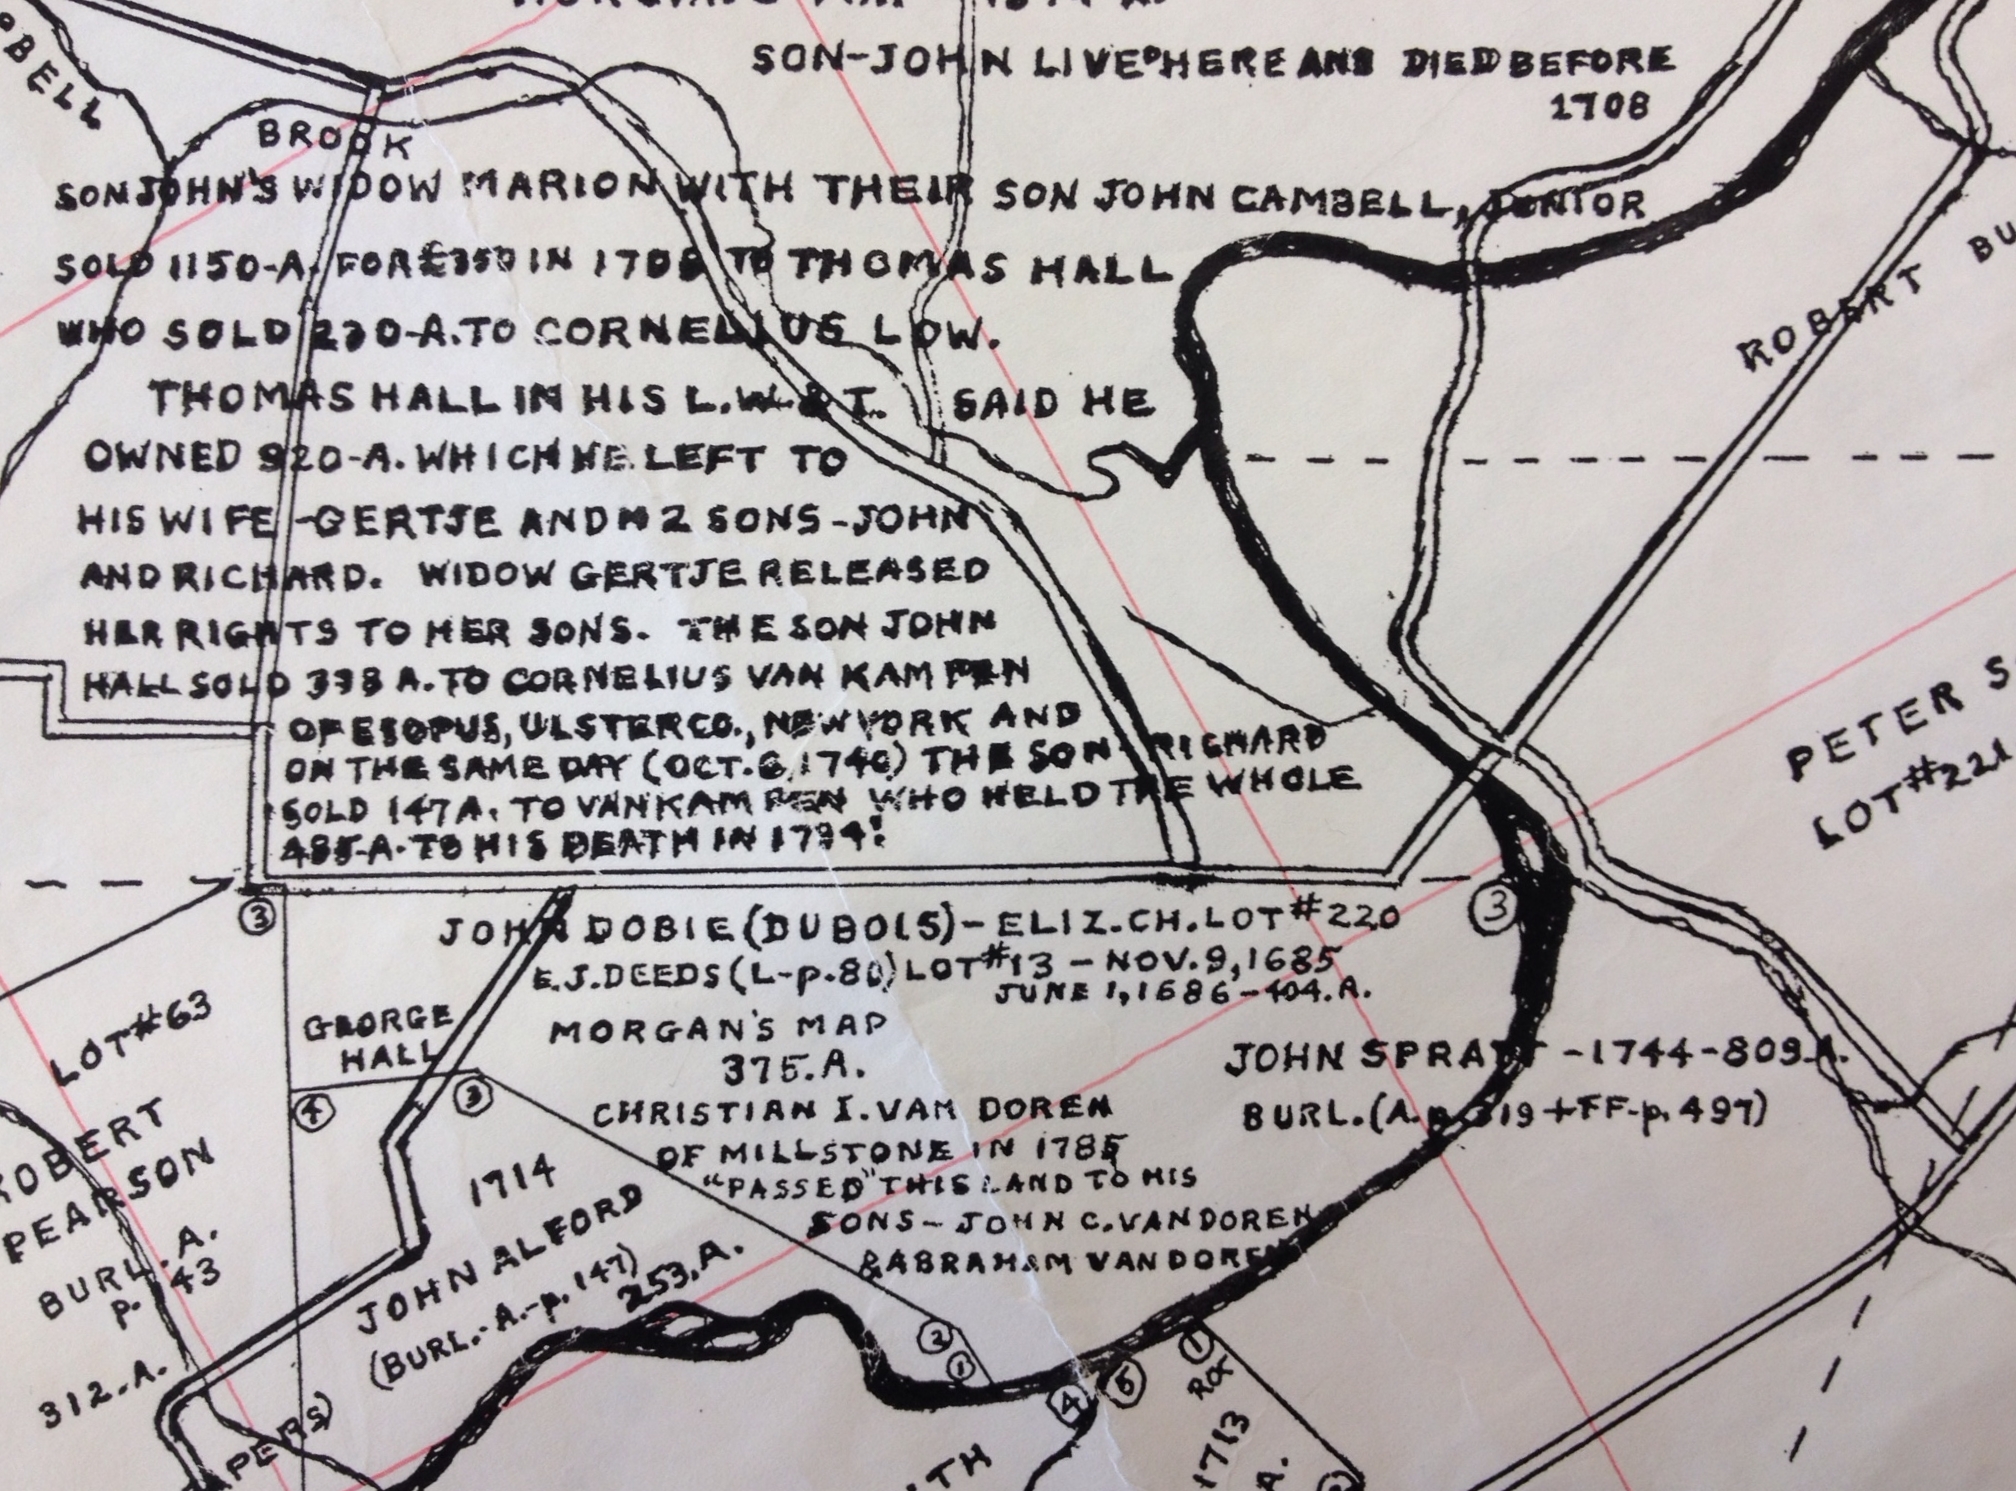 OBELL
SON-JOHN LIVED HERE AND DIED BEFORE
1708
BROOK
SON JOHN'S WIDOW MARION WITH THEIR SON JOHN CAMBELL, JUNIOR
SOLD 1150-A. FOR £350 IN 1708 TO THOMAS HALL
WHO SOLD 230-A. TO CORNELIUS LOW.
THOMAS HALL IN HIS L.W. & T. SAID HE
OWNED 920-A. WHICH HE LEFT TO
HIS WIFE-GERTJE AND 2 SONS-JOHN
AND RICHARD. WIDOW GERTJE RELEASED
HER RIGHTS TO HER SONS. THE SON JOHN
HALL SOLD 338 A. TO CORNELIUS VAN KAMPEN
OF ESOPUS, ULSTER CO., NEW YORK AND
ON THE SAME DAY (OCT. 6, 1740) THE SON RICHARD
SOLD 147A. TO VANKAMPEN WHO HELD THE WHOLE
485-A. TO HIS DEATH IN
ROBERT BU
PETER S
LOT #221
3
3
JOHN DOBIE (DUBOIS)-ELIZ.CH.LOT #220
E.J.DEEDS (L-p.80) LOT #13 - NOV.9,1685
JUNE 1, 1686-404.A.
MORGAN'S MAP
375.A.
CHRISTIAN I. VAN DOREN
OF MILLSTONE IN 1785
"PASSED" THIS LAND TO HIS
SONS- JOHN C. VANDOREN
& ABRAHAM VANDOREN
GEORGE
HALL
4
3
LOT #63
ROBERT
PEARSON
BURL. A.
p. 43
312.A.
1714
JOHN ALFORD
(BURL.-A.-p.147)
253.A.
JOHN SPRATT -1744-809.A.
BURL.(A.p.319+FF-p.497)
2
1
4
5
1
PERS)
TH
1713
A.